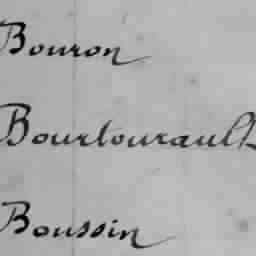 Bouron
Bourtourault
Boussin